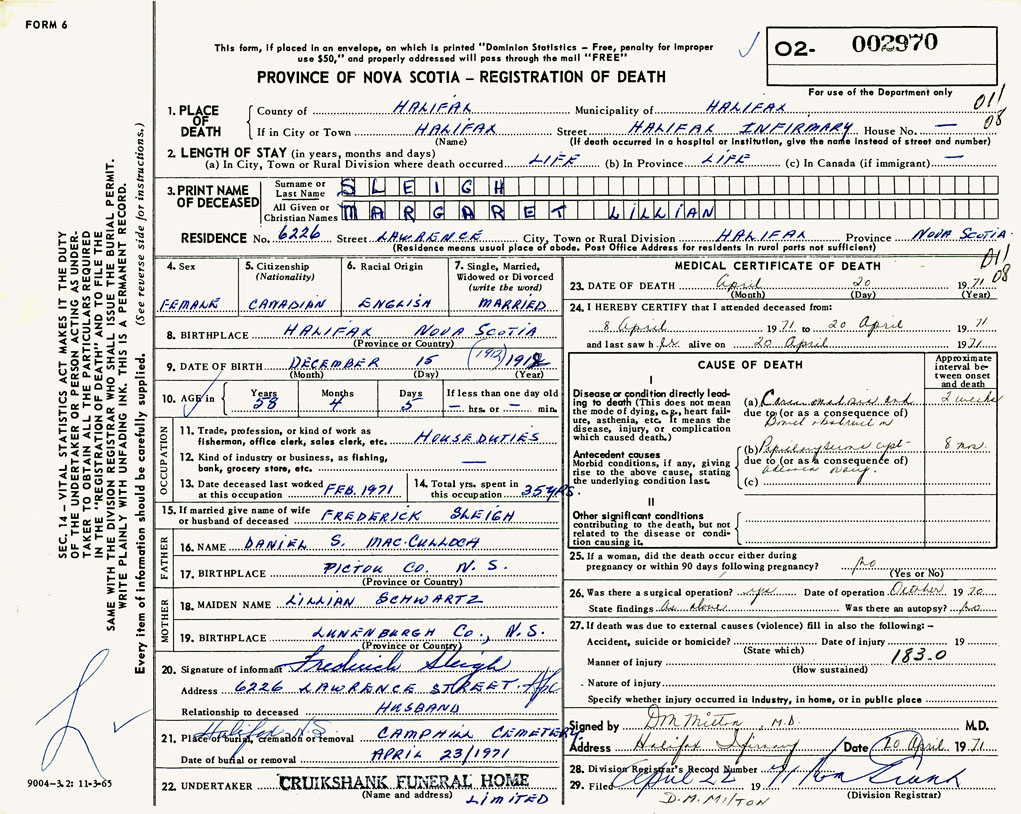 FORM 6
This form, if placed in an envelope, on which is printed "Dominion Statistics – Free, penalty for improper
use $50," and properly addressed will pass through the mail "FREE"
02- 002970
PROVINCE OF NOVA SCOTIA – REGISTRATION OF DEATH
For use of the Department only
011
08
1. PLACE OF DEATH
County of HALIFAX Municipality of HALIFAX
If in City or Town HALIFAX Street HALIFAX INFIRMARY House No. —
(Name) (If death occurred in a hospital or institution, give the name instead of street and number)
2. LENGTH OF STAY (in years, months and days)
(a) In City, Town or Rural Division where death occurred LIFE (b) In Province LIFE (c) In Canada (if immigrant) —
3. PRINT NAME OF DECEASED
Surname or Last Name SLEIGH
All Given or Christian Names MARGARET LILLIAN
RESIDENCE No. 6226 Street LAWRENCE City, Town or Rural Division HALIFAX Province NOVA SCOTIA
(Residence means usual place of abode. Post Office Address for residents in rural parts not sufficient)
4. Sex FEMALE
5. Citizenship (Nationality) CANADIAN
6. Racial Origin ENGLISH
7. Single, Married, Widowed or Divorced (write the word) MARRIED
8. BIRTHPLACE HALIFAX NOVA SCOTIA
(Province or Country)
9. DATE OF BIRTH DECEMBER 15 (1912) 1912
(Month) (Day) (Year)
10. AGE in Years 58 Months 4 Days 5 If less than one day old — hrs. or — min.
OCCUPATION
11. Trade, profession, or kind of work as
fisherman, office clerk, sales clerk, etc. HOUSE DUTIES
12. Kind of industry or business, as fishing,
bank, grocery store, etc. —
13. Date deceased last worked at this occupation FEB. 1971
14. Total yrs. spent in this occupation 35 YRS.
15. If married give name of wife
or husband of deceased FREDERICK SLEIGH
FATHER
16. NAME DANIEL S. MAC CULLOCH
17. BIRTHPLACE PICTOU CO. N.S.
(Province or Country)
MOTHER
18. MAIDEN NAME LILLIAN SCHWARTZ
19. BIRTHPLACE LUNENBURGH CO., N.S.
(Province or Country)
20. Signature of informant Frederick Sleigh
Address 6226 LAWRENCE STREET
Relationship to deceased HUSBAND
Halifax N.S.
21. Place of burial, cremation or removal CAMPHILL CEMETERY
Date of burial or removal APRIL 23/1971
22. UNDERTAKER CRUIKSHANK FUNERAL HOME
(Name and address) LIMITED
MEDICAL CERTIFICATE OF DEATH
011
08
23. DATE OF DEATH April 20 1971
(Month) (Day) (Year)
24. I HEREBY CERTIFY that I attended deceased from:
8 April 1971 to 20 April 1971
and last saw her alive on 20 April 1971
CAUSE OF DEATH
Approximate interval between onset and death
I
Disease or condition directly leading to death (This does not mean the mode of dying, e.g., heart failure, asthenia, etc. It means the disease, injury, or complication which caused death.)
(a) and 2 weeks
due to (or as a consequence of)
Bowel obstruction
Antecedent causes
Morbid conditions, if any, giving rise to the above cause, stating the underlying condition last.
(b) 8 mos.
due to (or as a consequence of)
(c)
II
Other significant conditions
contributing to the death, but not related to the disease or condition causing it.
25. If a woman, did the death occur either during
pregnancy or within 90 days following pregnancy? no
(Yes or No)
26. Was there a surgical operation? yes Date of operation October 1970
State findings As above Was there an autopsy? no
27. If death was due to external causes (violence) fill in also the following: –
Accident, suicide or homicide? Date of injury 19
(State which) 183.0
Manner of injury
(How sustained)
Nature of injury
Specify whether injury occurred in industry, in home, or in public place
Signed by D M Milton, M.D. M.D.
Address Halifax Infirmary Date 20 April 1971
28. Division Registrar's Record Number
29. Filed April 22 19
D.M. MILTON (Division Registrar)
SEC. 14 – VITAL STATISTICS ACT MAKES IT THE DUTY
OF THE UNDERTAKER OR PERSON ACTING AS UNDER-
TAKER TO OBTAIN ALL THE PARTICULARS REQUIRED
IN THE "REGISTRATION OF DEATH" AND TO FILE THE
SAME WITH THE DIVISION REGISTRAR WHO SHALL ISSUE THE BURIAL PERMIT.
WRITE PLAINLY WITH UNFADING INK. THIS IS A PERMANENT RECORD.
Every item of information should be carefully supplied. (See reverse side for instructions.)
9004-3.2: 11-3-65